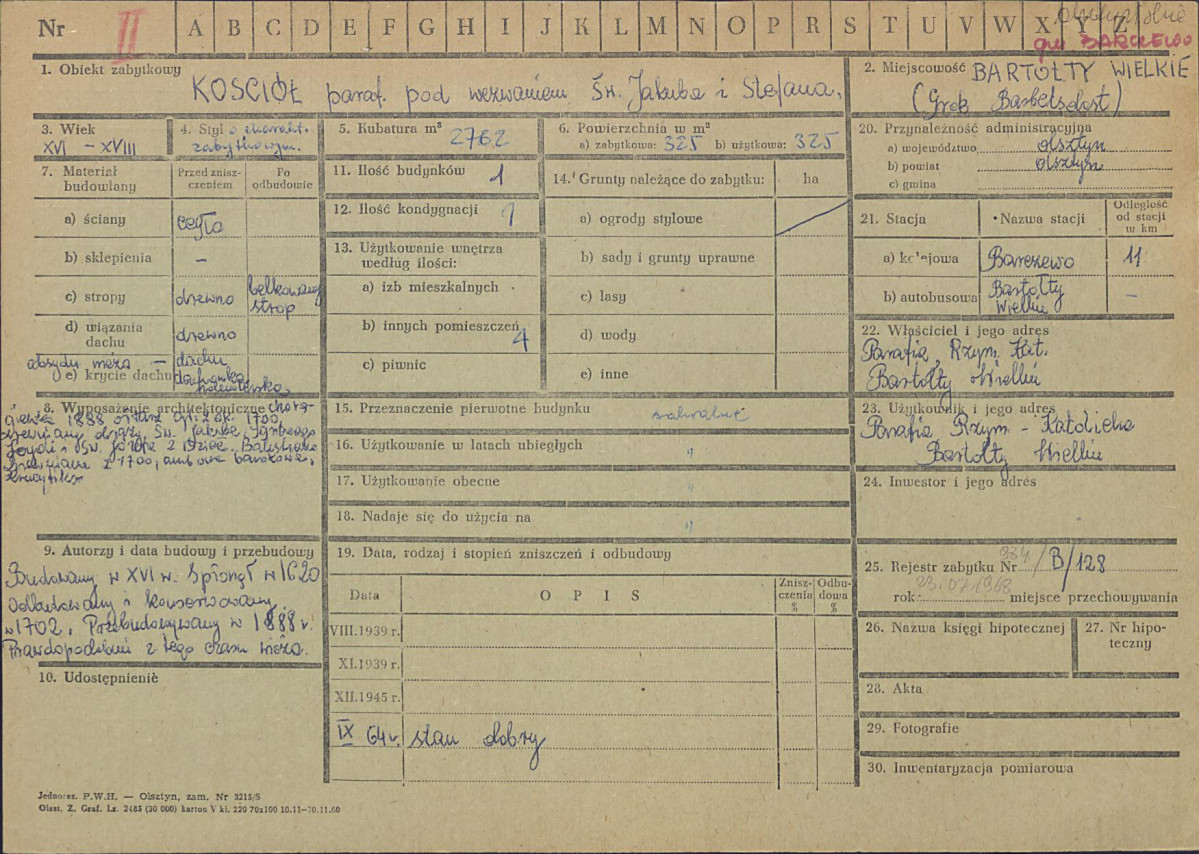 Nr II A B C D E F G H I J K L M N O P R S T U V W X Y Z
gm BARCZEWO
1. Obiekt zabytkowy
KOSCIÓŁ paraf. pod wezwaniem Św. Jakuba i Stefana.
2. Miejscowość BARTOŁTY WIELKIE
3. Wiek
XVI – XVIII
4. Styl o charakt.
zabytkowym.
5. Kubatura m³ 2762
6. Powierzchnia w m²
a) zabytkowa: 325 b) użytkowa: 325
20. Przynależność administracyjna
a) województwo olsztyn
b) powiat olsztyn
c) gmina
7. Materiał budowlany
Przed zniszczeniem
Po odbudowie
a) ściany cegła
b) sklepienia –
c) stropy drewno belkowany strop
d) wiązania dachu drewno
e) krycie dachu
11. Ilość budynków 1
12. Ilość kondygnacji 1
13. Użytkowanie wnętrza
według ilości:
a) izb mieszkalnych
b) innych pomieszczeń 4
c) piwnic
14. Grunty należące do zabytku: ha
a) ogrody stylowe
b) sady i grunty uprawne
c) lasy
d) wody
e) inne
21. Stacja Nazwa stacji Odległość od stacji w km
a) kolejowa Barczewo 11
b) autobusowa Bartołty Wielkie –
22. Właściciel i jego adres
Parafia Rzym. Kat.
Bartołty Wielkie
8. Wyposażenie architektoniczne
15. Przeznaczenie pierwotne budynku sakralne
16. Użytkowanie w latach ubiegłych "
17. Użytkowanie obecne "
18. Nadaje się do użycia na "
23. Użytkownik i jego adres
Parafia Rzym – Katolicka
Bartołty Wielkie
24. Inwestor i jego adres
9. Autorzy i data budowy i przebudowy
Budowany w XVI w. Spłonął w 1620
Odbudowany i konserwowany
w 1702. Przebudowywany w 1888 r.
Prawdopodobnie z tego czasu wieża.
10. Udostępnienie
19. Data, rodzaj i stopień zniszczeń i odbudowy
Data OPIS Zniszczenia % Odbudowa %
VIII.1939 r.
XI.1939 r.
XII.1945 r.
IX 64 r. stan dobry
25. Rejestr zabytku Nr 384/B/128
rok: 23.07.1968 miejsce przechowywania
26. Nazwa księgi hipotecznej
27. Nr hipoteczny
28. Akta
29. Fotografie
30. Inwentaryzacja pomiarowa
Jednoraz. P.W.H. — Olsztyn, zam. Nr 3215/S
Olszt. Z. Graf. Lz. 2485 (30 000) karton V kl. 220 70x100 10.11—10.11.60